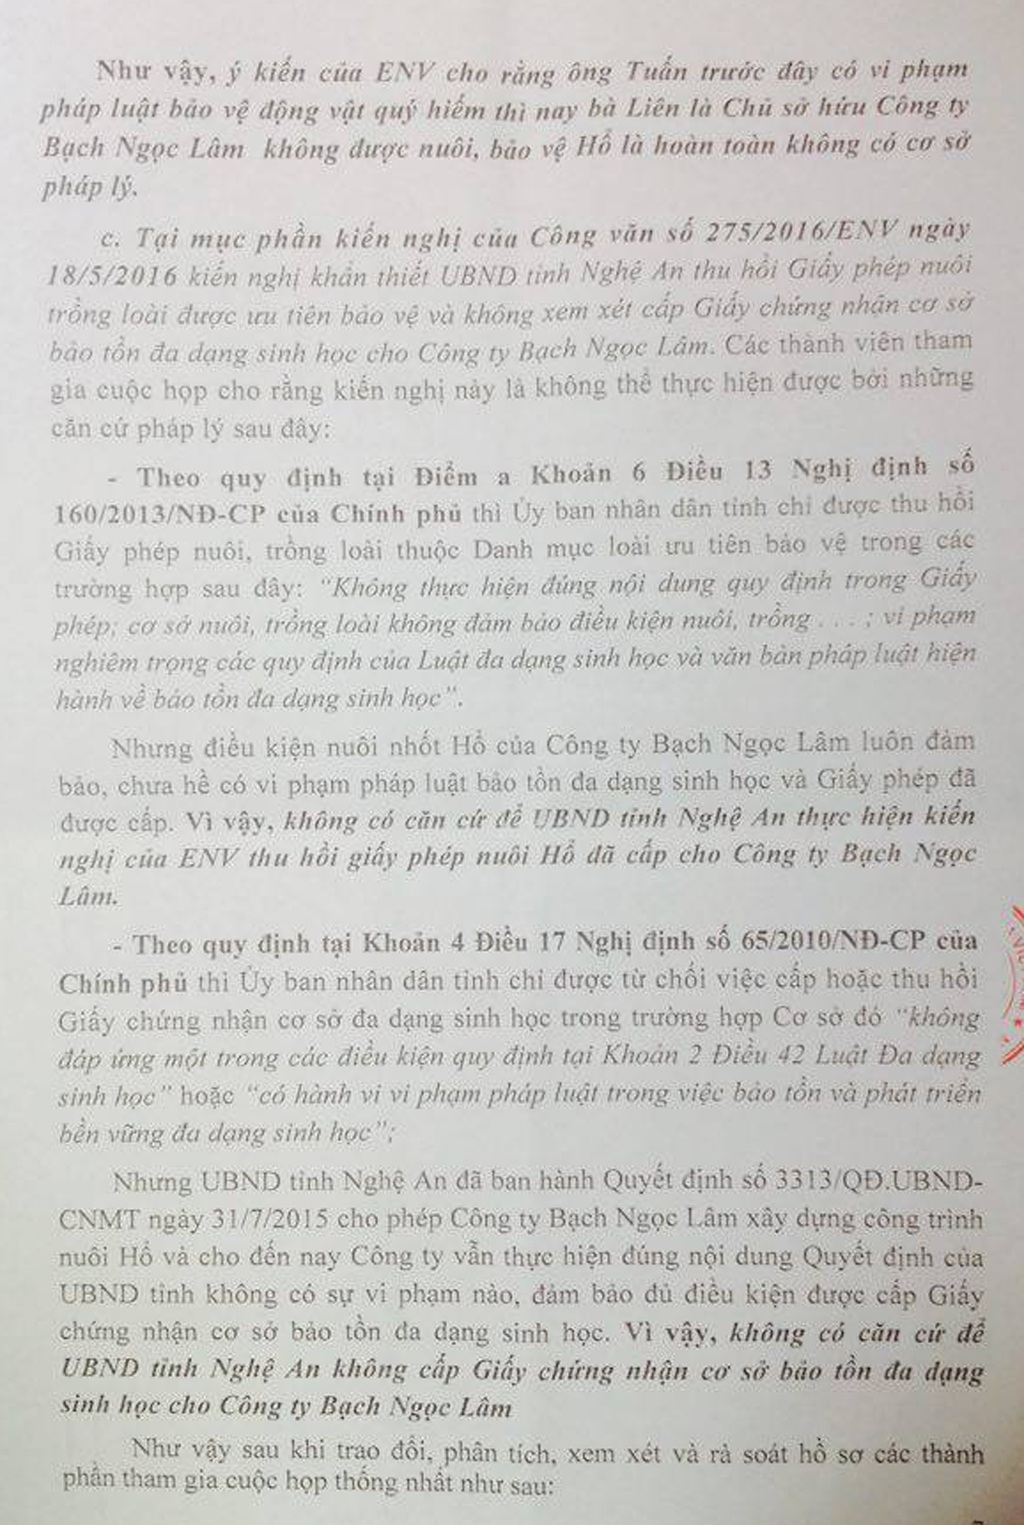 Như vậy, ý kiến của ENV cho rằng ông Tuấn trước đây có vi phạm
pháp luật bảo vệ động vật quý hiếm thì nay bà Liên là Chủ sở hữu Công ty
Bạch Ngọc Lâm không được nuôi, bảo vệ Hổ là hoàn toàn không có cơ sở
pháp lý.
c. Tại mục phần kiến nghị của Công văn số 275/2016/ENV ngày
18/5/2016 kiến nghị khẩn thiết UBND tỉnh Nghệ An thu hồi Giấy phép nuôi
trồng loài được ưu tiên bảo vệ và không xem xét cấp Giấy chứng nhận cơ sở
bảo tồn đa dạng sinh học cho Công ty Bạch Ngọc Lâm. Các thành viên tham
gia cuộc họp cho rằng kiến nghị này là không thể thực hiện được bởi những
căn cứ pháp lý sau đây:
- Theo quy định tại Điểm a Khoản 6 Điều 13 Nghị định số
160/2013/NĐ-CP của Chính phủ thì Ủy ban nhân dân tỉnh chỉ được thu hồi
Giấy phép nuôi, trồng loài thuộc Danh mục loài ưu tiên bảo vệ trong các
trường hợp sau đây: "Không thực hiện đúng nội dung quy định trong Giấy
phép; cơ sở nuôi, trồng loài không đảm bảo điều kiện nuôi, trồng . . . ; vi phạm
nghiêm trọng các quy định của Luật đa dạng sinh học và văn bản pháp luật hiện
hành về bảo tồn đa dạng sinh học".
Nhưng điều kiện nuôi nhốt Hổ của Công ty Bạch Ngọc Lâm luôn đảm
bảo, chưa hề có vi phạm pháp luật bảo tồn đa dạng sinh học và Giấy phép đã
được cấp. Vì vậy, không có căn cứ để UBND tỉnh Nghệ An thực hiện kiến
nghị của ENV thu hồi giấy phép nuôi Hổ đã cấp cho Công ty Bạch Ngọc
Lâm.
- Theo quy định tại Khoản 4 Điều 17 Nghị định số 65/2010/NĐ-CP của
Chính phủ thì Ủy ban nhân dân tỉnh chỉ được từ chối việc cấp hoặc thu hồi
Giấy chứng nhận cơ sở đa dạng sinh học trong trường hợp Cơ sở đó "không
đáp ứng một trong các điều kiện quy định tại Khoản 2 Điều 42 Luật Đa dạng
sinh học" hoặc "có hành vi vi phạm pháp luật trong việc bảo tồn và phát triển
bền vững đa dạng sinh học";
Nhưng UBND tỉnh Nghệ An đã ban hành Quyết định số 3313/QĐ.UBND-
CNMT ngày 31/7/2015 cho phép Công ty Bạch Ngọc Lâm xây dựng công trình
nuôi Hổ và cho đến nay Công ty vẫn thực hiện đúng nội dung Quyết định của
UBND tỉnh không có sự vi phạm nào, đảm bảo đủ điều kiện được cấp Giấy
chứng nhận cơ sở bảo tồn đa dạng sinh học. Vì vậy, không có căn cứ để
UBND tỉnh Nghệ An không cấp Giấy chứng nhận cơ sở bảo tồn đa dạng
sinh học cho Công ty Bạch Ngọc Lâm
Như vậy sau khi trao đổi, phân tích, xem xét và rà soát hồ sơ các thành
phần tham gia cuộc họp thống nhất như sau: